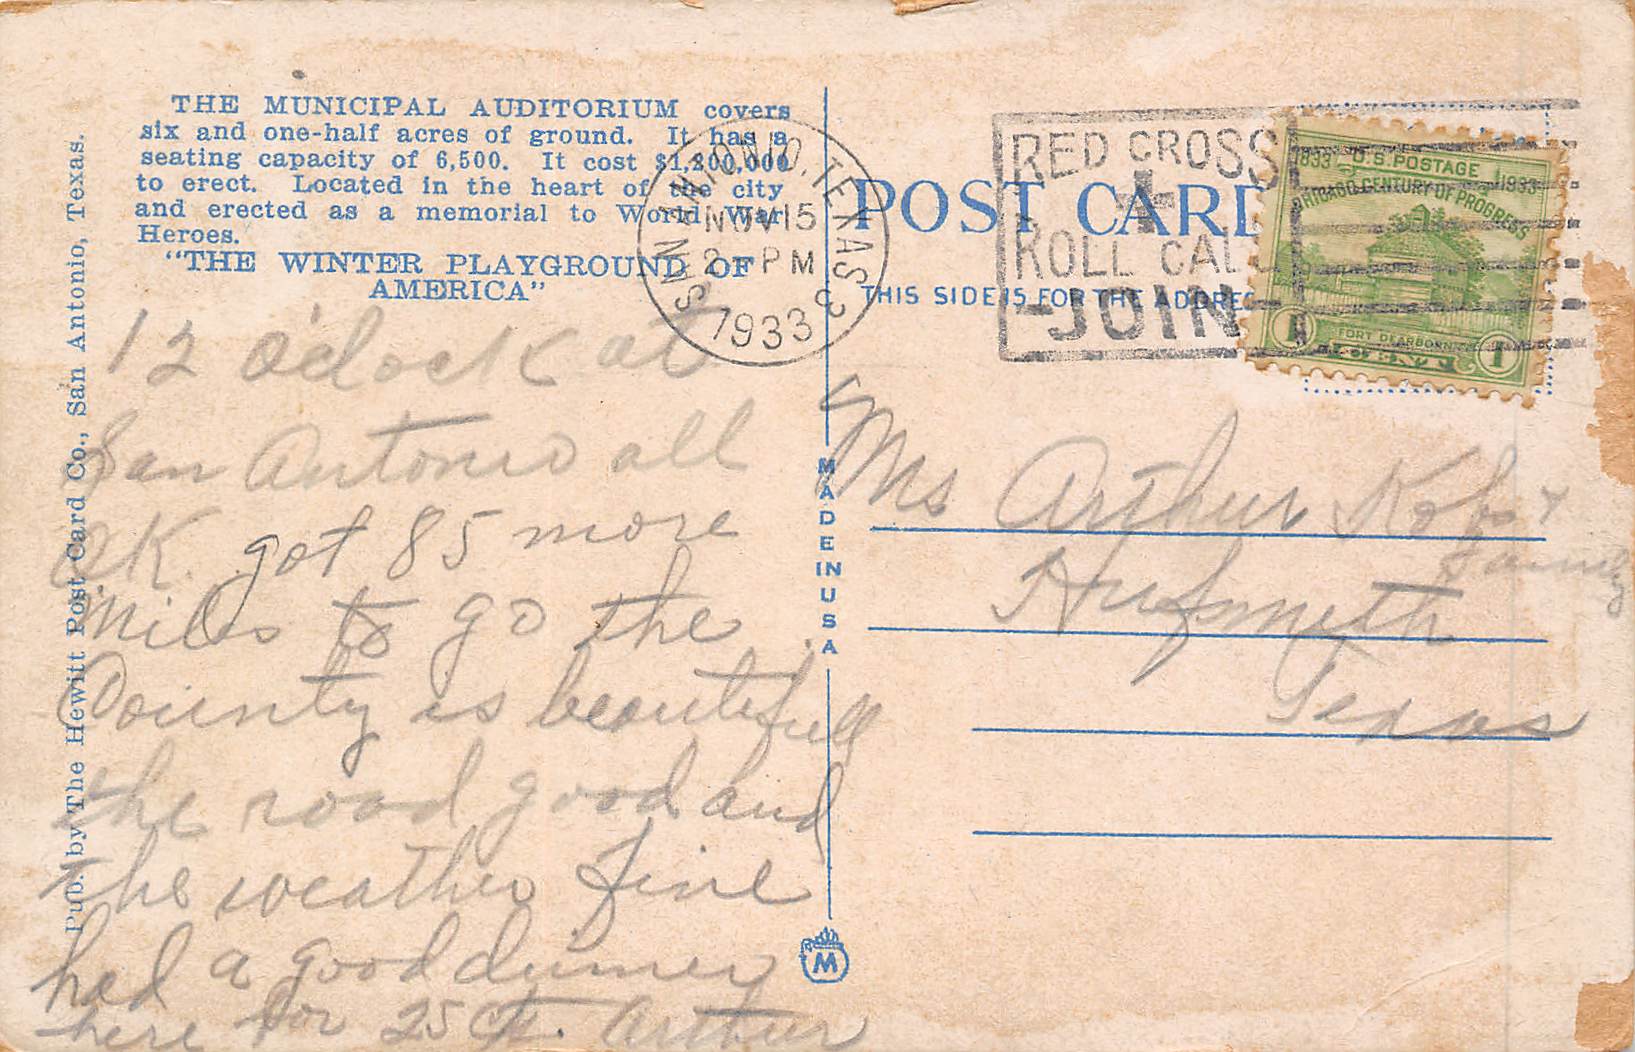 THE MUNICIPAL AUDITORIUM covers
six and one-half acres of ground. It has a
seating capacity of 6,500. It cost $1,200,000
to erect. Located in the heart of the city
and erected as a memorial to World War
Heroes.
"THE WINTER PLAYGROUND OF
AMERICA"
Pub. by The Hewitt Post Card Co., San Antonio, Texas.
12 o'clock at
San Antonio all
OK. got 85 more
Miles to go the
County is beautifull
the road good and
the weather fine
had a good dinner
here for 25 Ct. Arthur
SAN ANTONIO, TEXAS 3
NOV 15
2 - PM
1933
MADE IN USA
M
POST CARD
THIS SIDE IS FOR THE ADDRE
RED CROSS
ROLL CALL
JOIN
1833 U.S. POSTAGE 1933
CHICAGO CENTURY OF PROGRESS
FORT DEARBORN
1 1
Ms Arthur Kobs &
Family
Hufsmith
Texas